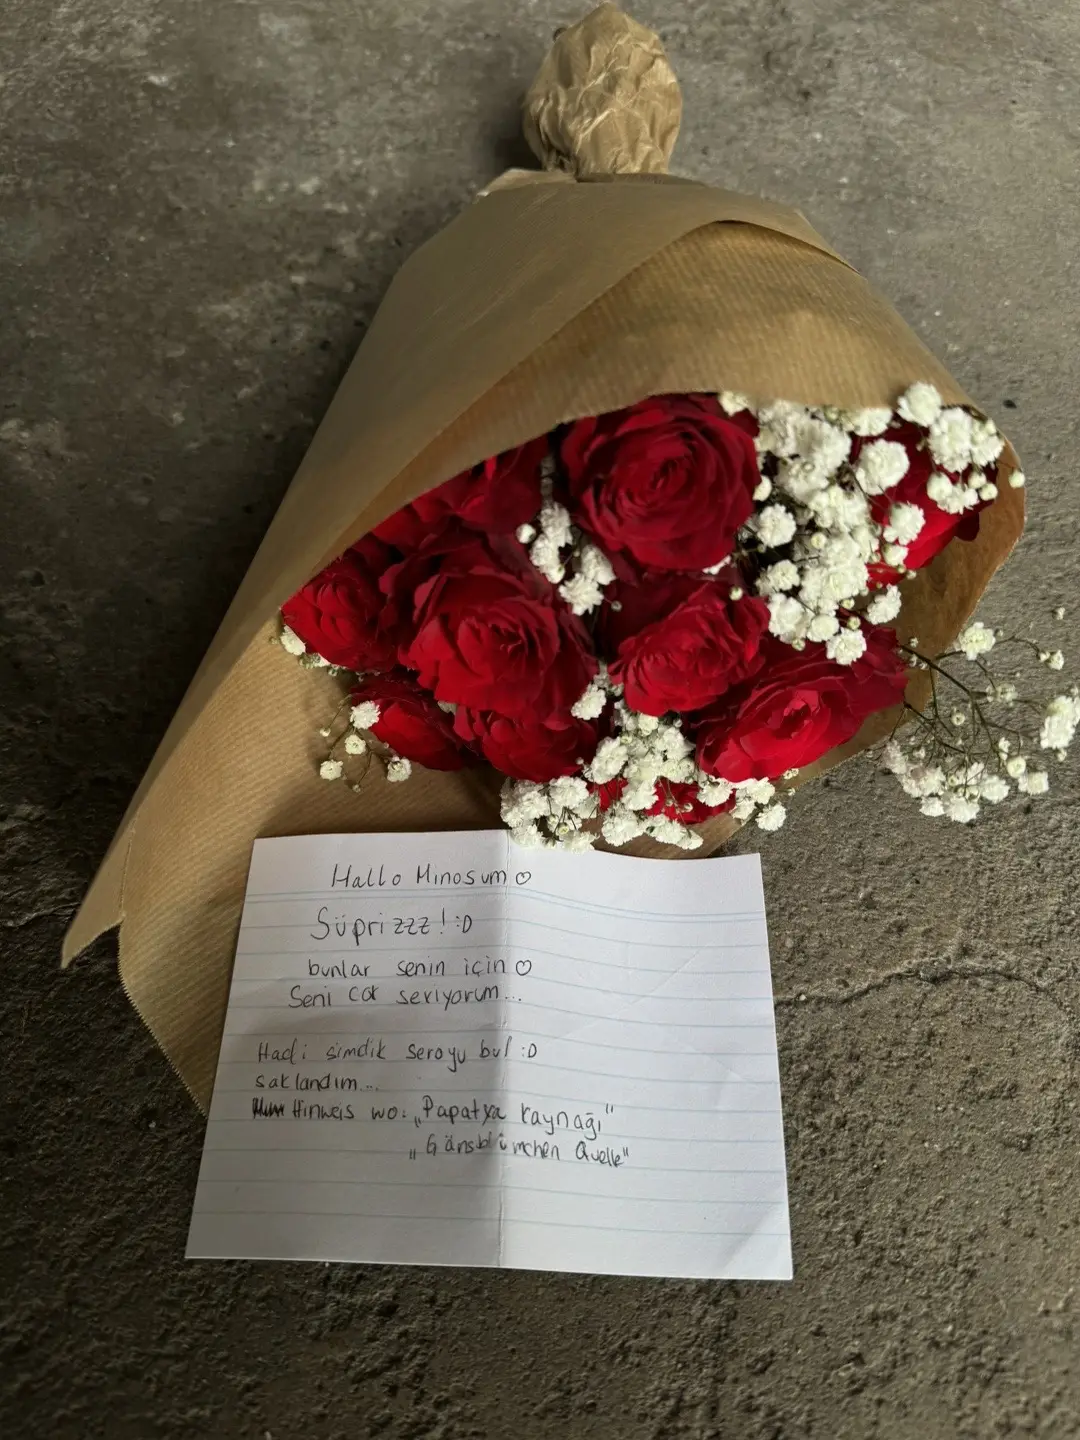 Hallo Minosum ♡
Süprizzz! :D
bunlar senin için ♡
Seni cok seviyorum...
Hadi simdik seroyu bul :D
saklandım...
Hinweis wo: „Papatya kaynağı"
„Gänsblümchen Quelle"